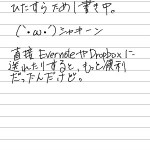 ひたすらためし書き中。
(`･ω･´)シャキーン
直接 EvernoteやDropboxに
送れたりすると、もっと便利
だったんだけど。